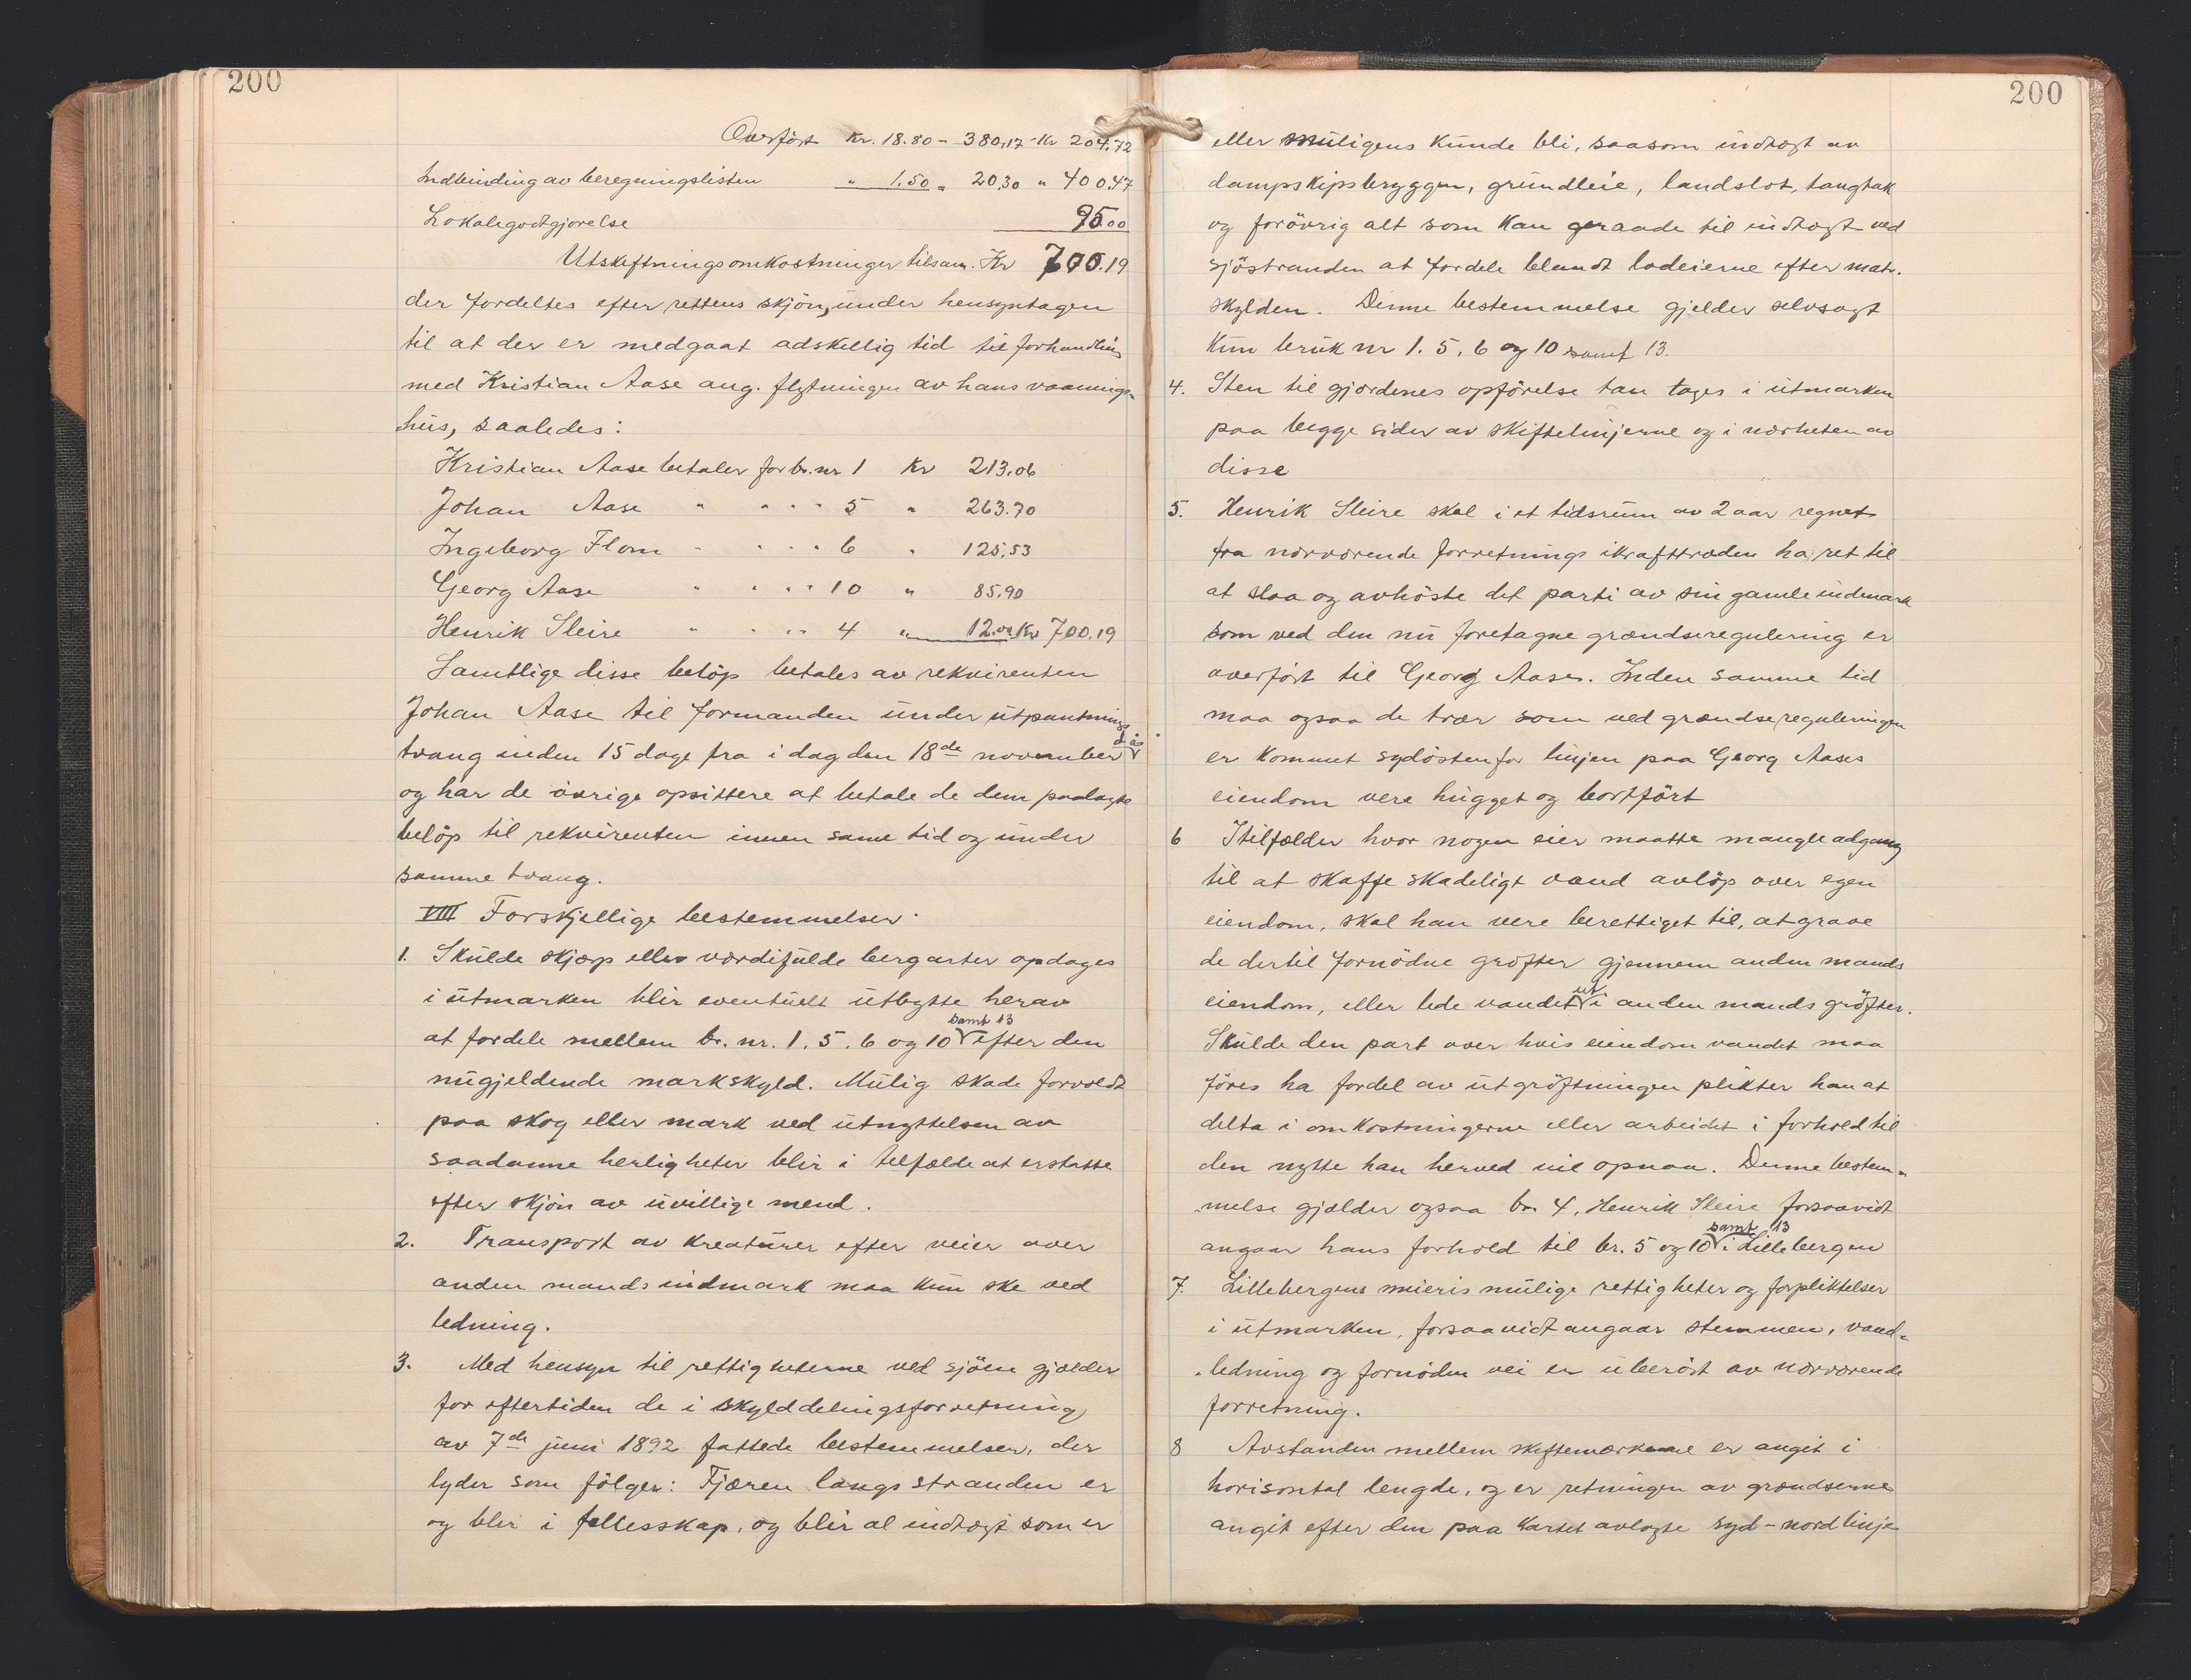 200
Overført Kr. 18.80 - 380,17 - Kr 204.72
Indbinding av beregningslisten " 1.50 = 20,30 " 400.47
Lokalegodtgjørelse 95.00
Utskiftningsomkostninger tilsam. Kr 700.19
der fordeltes efter rettens skjön, under hensyntagen
til at der er medgaat adskillig tid til forhandling
med Kristian Aase ang. flytningen av hans vaanings-
hus, saaledes:
Kristian Aase betaler for br. nr 1 Kr 213.06
Johan Aase " " " " 5 " 263.70
Ingeborg Flom " " " " 6 " 125.53
Georg Aase " " " " 10 " 85.90
Henrik Sleire " " " " 4 " 12.00 Kr 700.19
Samtlige disse beløp betales av rekvirenten
Johan Aase til formanden under utpantnings
tvang inden 15 dage fra i dag den 18de november d. å.
og har de øvrige opsittere at betale de dem paalagte
beløp til rekvirenten innen same tid og under
samme tvang.
VIII Forskjellige bestemmelser.
1. Skulde skjærp eller værdifulde bergarter opdages
i utmarken blir eventuelt utbytte herav
at fordele mellem br. nr. 1, 5, 6 og 10 samt 13 efter den
nugjeldende markskyld. Mulig skade forvoldt
paa skog eller mark ved utnyttelsen av
saadanne herligheter blir i tilfælde at erstatte
efter skjön av uvillige mend.
2. Transport av kreaturer efter veier over
anden mands indmark maa kun ske ved
ledning.
3. Med hensyn til rettigheterne ved sjöen gjælder
for eftertiden de i skylddelingsforretning
av 7de juni 1892 fattede bestemmelser, der
lyder som fölger: Fjæren langs stranden er
og blir i fellesskap, og blir al indtægt som er
200
eller muligens kunde bli, saasom indtægt av
dampskipsbryggen, grundleie, landslot, tangtak
og forövrig alt som kan geraade til indtægt ved
sjöstranden at fordele blandt lodeierne efter matr.
skylden. Denne bestemmelse gjelder selvsagt
kun bruk nr 1. 5, 6 og 10 samt 13.
4. Sten til gjærdenes opförelse kan tages i utmarken
paa begge sider av skiftelinjerne og i nærheten av
disse
5. Henrik Sleire skal i et tidsrum av 2 aar regnet
fra nærværende forretnings ikrafttræden ha ret til
at slaa og avhöste det parti av sin gamle indmark
som ved den nu foretagne grændseregulering er
overfört til Georg Aase. Inden samme tid
maa ogsaa de trær som ved grændsereguleringen
er kommet sydöstenfor linjen paa Georg Aases
eiendom vere hugget og bortfört
6 I tilfælder hvor nogen eier maatte mangle adgang
til at skaffe skadeligt vand avlöp over egen
eiendom, skal han vere berettiget til, at grave
de dertil fornödne gröfter gjennem anden mands
eiendom, eller lede vandet ut i anden mands gröfter.
Skulde den part over hvis eiendom vandet maa
föres ha fordel av utgröftningen plikter han at
delta i omkostningerne eller arbeidet i forhold til
den nytte han herved vil opnaa. Denne bestem-
melse gjælder ogsaa br. 4, Henrik Sleire forsaavidt
angaar hans forhold til br. 5 og 10 samt 13 i Lillebergen
7. Lillebergens meieris mulige rettigheter og forpliktelser
i utmarken, forsaavidt angaar stemmen, vand-
ledning og fornöden vei er uberört av nærværende
forretning.
8 Avstanden mellem skiftemærkerne er angit i
horisontal lengde, og er retningen av grændserne
angit efter den paa kartet avlagte syd-nord linje